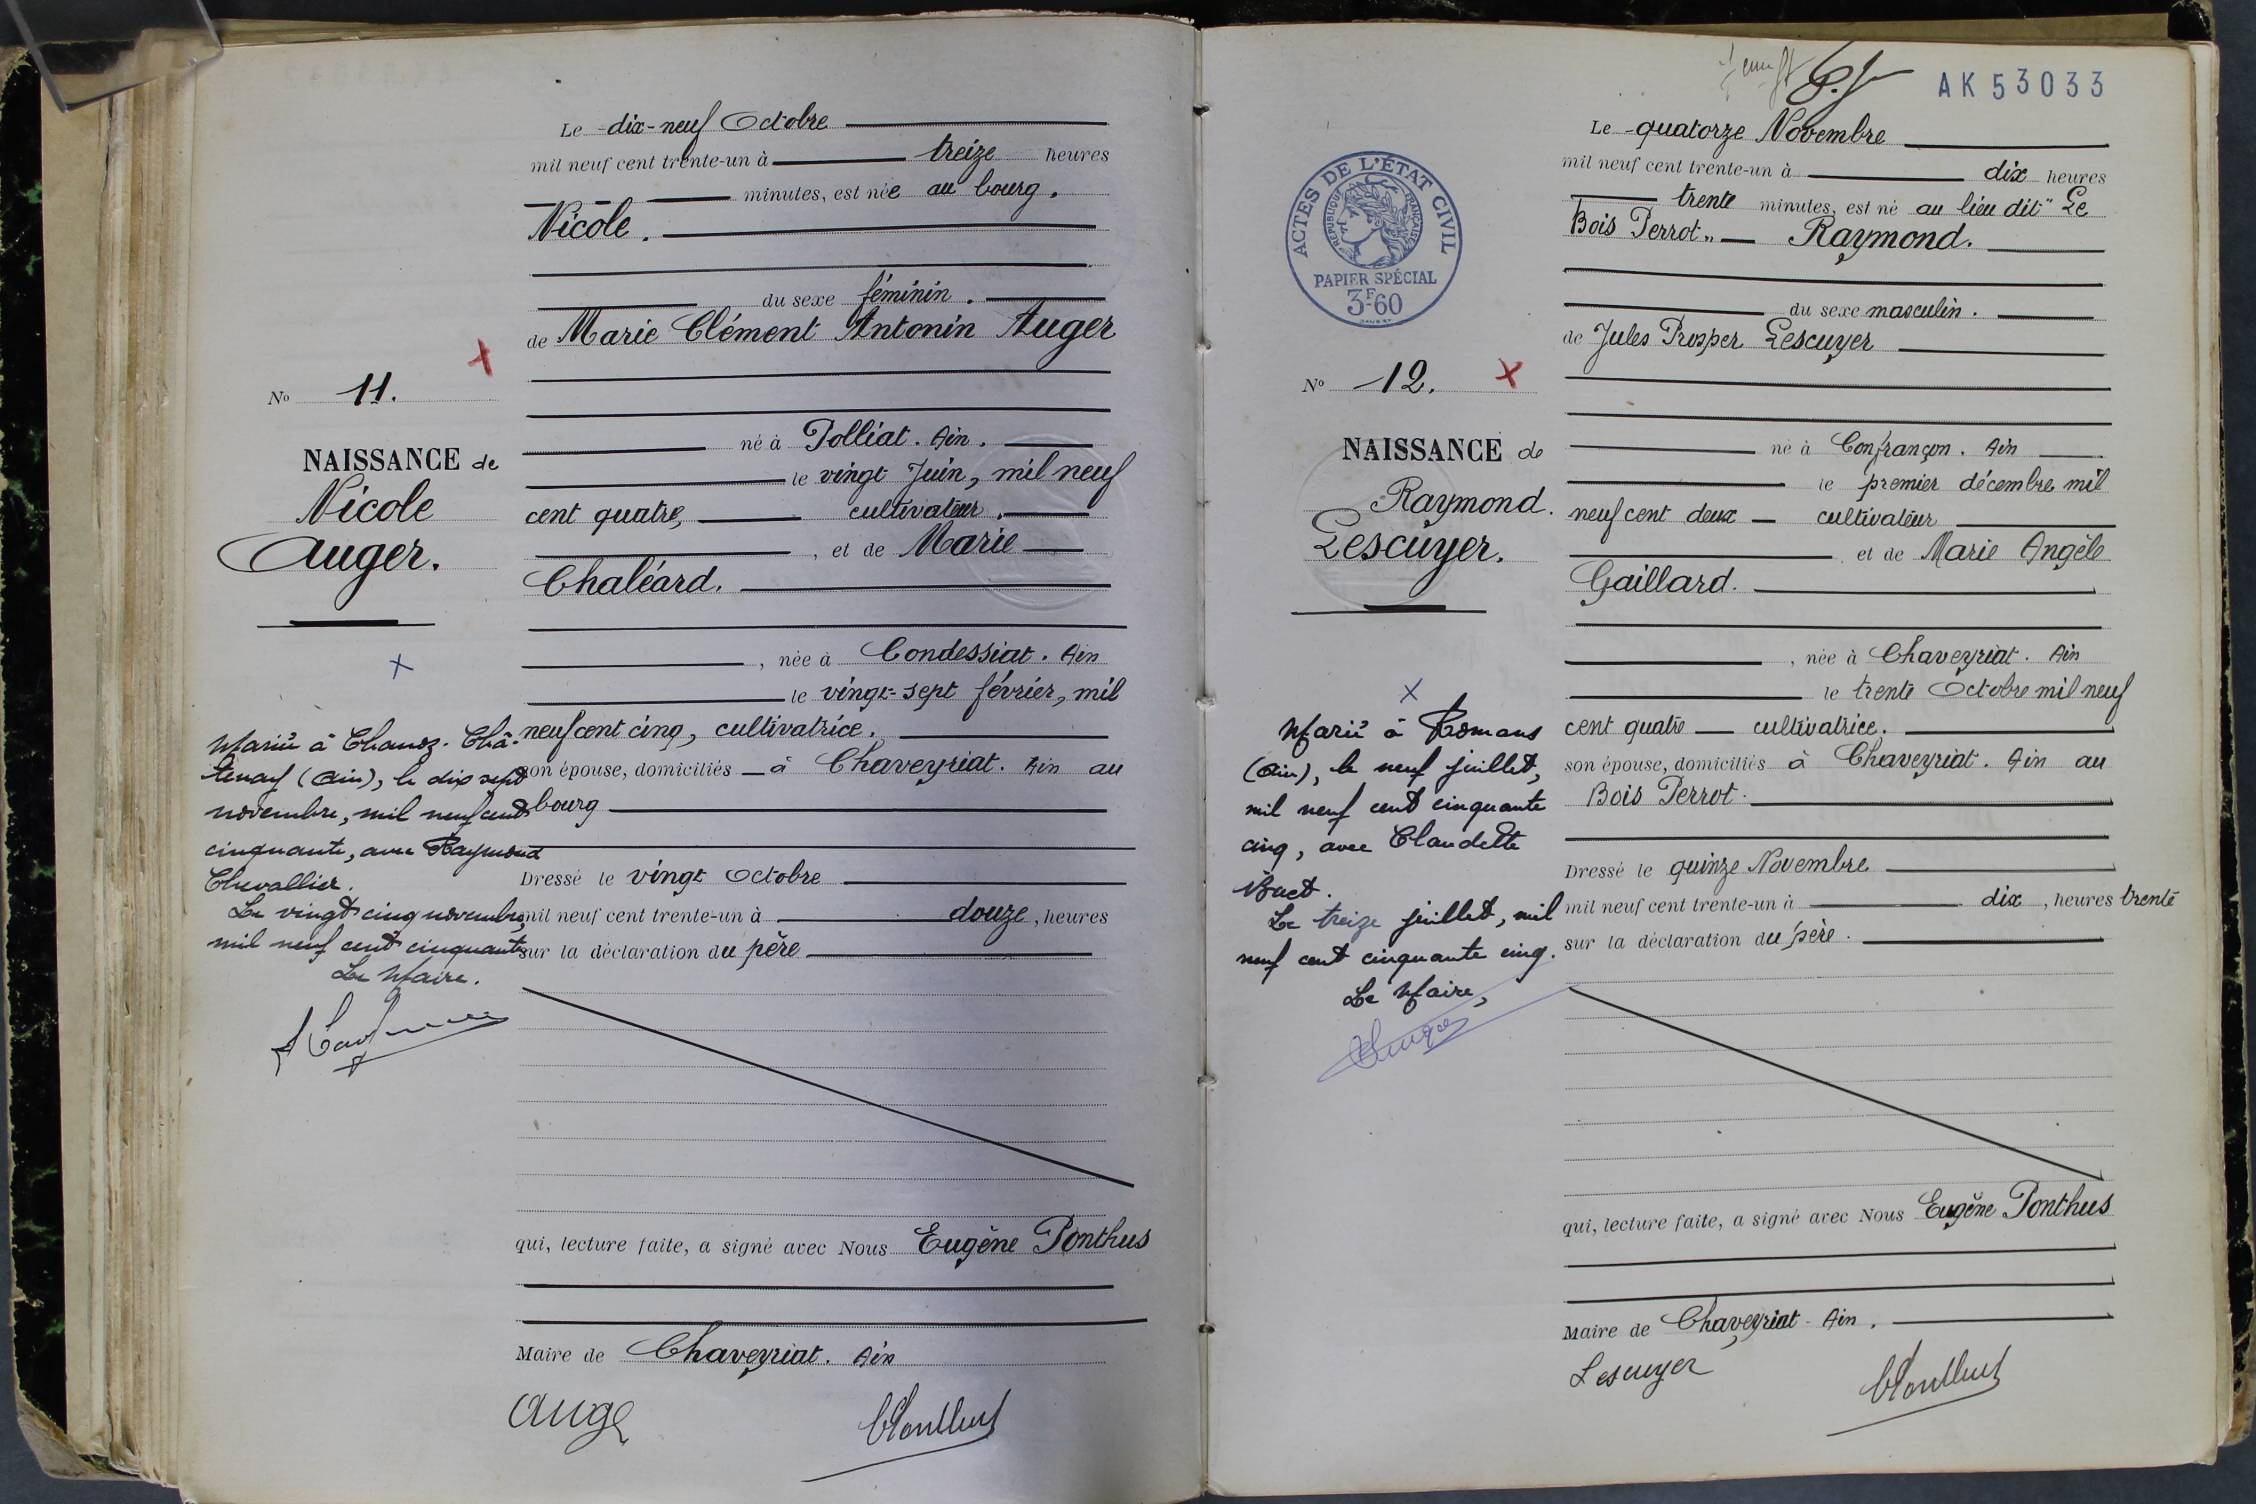 Le dix-neuf Octobre
mil neuf cent trente-un à treize heures
minutes, est née au bourg.
Nicole.
du sexe féminin.
de Marie Clément Antonin Auger
No 11.
né à Polliat. Ain.
NAISSANCE de
le vingt Juin, mil neuf
Nicole
cent quatre, cultivateur.
Auger.
, et de Marie
Chaléard.
, née à Condessiat. Ain
le vingt-sept février, mil
neuf cent cinq, cultivatrice.
son épouse, domiciliés à Chaveyriat. Ain au
bourg
Dressé le vingt Octobre
mil neuf cent trente-un à douze, heures
sur la déclaration du père
Mariée à Chanoz-Châ-
tenay (Ain), le dix sept
novembre, mil neuf cent
cinquante, avec Raymond
Chevallier.
Le vingt cinq novembre,
mil neuf cent cinquante
Le Maire.
qui, lecture faite, a signé avec Nous Eugène Ponthus
Maire de Chaveyriat. Ain
Auge
EPonthus
AK53033
Le quatorze Novembre
mil neuf cent trente-un à dix heures
trente minutes, est né au lieu dit "Le
Bois Perrot" Raymond.
ACTES DE L'ÉTAT CIVIL
RÉPUBLIQUE FRANÇAISE
PAPIER SPÉCIAL
3F60
du sexe masculin.
de Jules Prosper Lescuyer
No 12.
NAISSANCE de
Raymond.
Lescuyer.
né à Confrançon. Ain
le premier décembre mil
neuf cent deux cultivateur
et de Marie Angèle
Gaillard.
, née à Chaveyriat. Ain
le trente Octobre mil neuf
cent quatre cultivatrice.
son épouse, domiciliés à Chaveyriat. Ain au
Bois Perrot.
Dressé le quinze Novembre
mil neuf cent trente-un à dix, heures trente
sur la déclaration du père.
Marié à Romans
(Ain), le neuf juillet,
mil neuf cent cinquante
cinq, avec Claudette
Buet.
Le treize juillet, mil
neuf cent cinquante cinq.
Le Maire,
qui, lecture faite, a signé avec Nous Eugène Ponthus
Maire de Chaveyriat - Ain.
Lescuyer
EPonthus